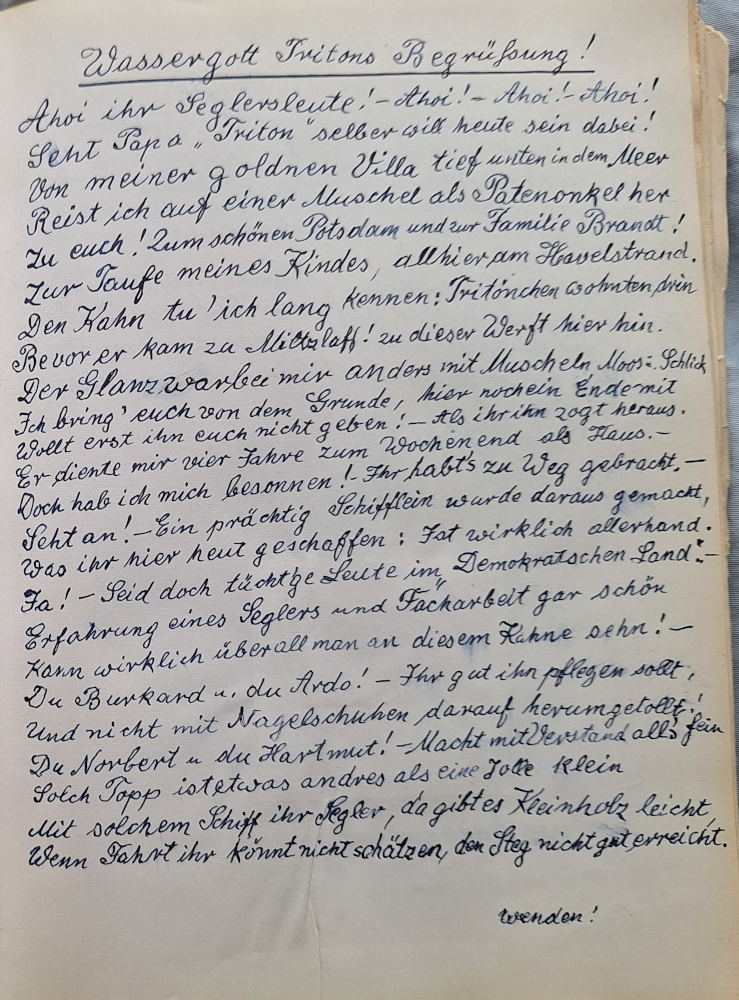 Wassergott Tritons Begrüßung!
Ahoi ihr Seglersleute! – Ahoi! – Ahoi! – Ahoi!
Seht Papa „Triton" selber will heute sein dabei!
Von meiner goldnen Villa tief unten in dem Meer
Reist ich auf einer Muschel als Patenonkel her
Zu euch! Zum schönen Potsdam und zur Familie Brandt!
Zur Taufe meines Kindes, allhier, am Havelstrand.
Den Kahn tu' ich lang kennen: Tritönchen wohnten drin
Bevor er kam zu Miltzlaff! zu dieser Werft hier hin.
Der Glanz war bei mir anders mit Muscheln Moos = Schlick
Ich bring' euch von dem Grunde, hier noch ein Ende mit
Wollt erst ihn euch nicht geben! – Als ihr ihn zogt heraus.
Er diente mir vier Jahre zum Wochenend als Haus. –
Doch hab ich mich besonnen! – Ihr habt's zu Weg gebracht. –
Seht an! – Ein prächtig Schifflein wurde daraus gemacht,
Was ihr hier heut geschaffen: Ist wirklich allerhand.
Ja! – Seid doch tücht'ge Leute im „Demokratschen Land". –
Erfahrung eines Seglers und Facharbeit gar schön
Kann wirklich überall man an diesem Kahne sehn! –
Du Burkard u. du Ardo! – Ihr gut ihn pflegen sollt,
Und nicht mit Nagelschuhen darauf herumgetollt!
Du Norbert u du Hartmut! – Macht mit Verstand all's fein
Solch Topp ist etwas andres als eine Jolle klein
Mit solchem Schiff ihr Segler, da gibt es Kleinholz leicht,
Wenn Fahrt ihr könnt nicht schätzen, den Steg nicht gut erreicht.
wenden!